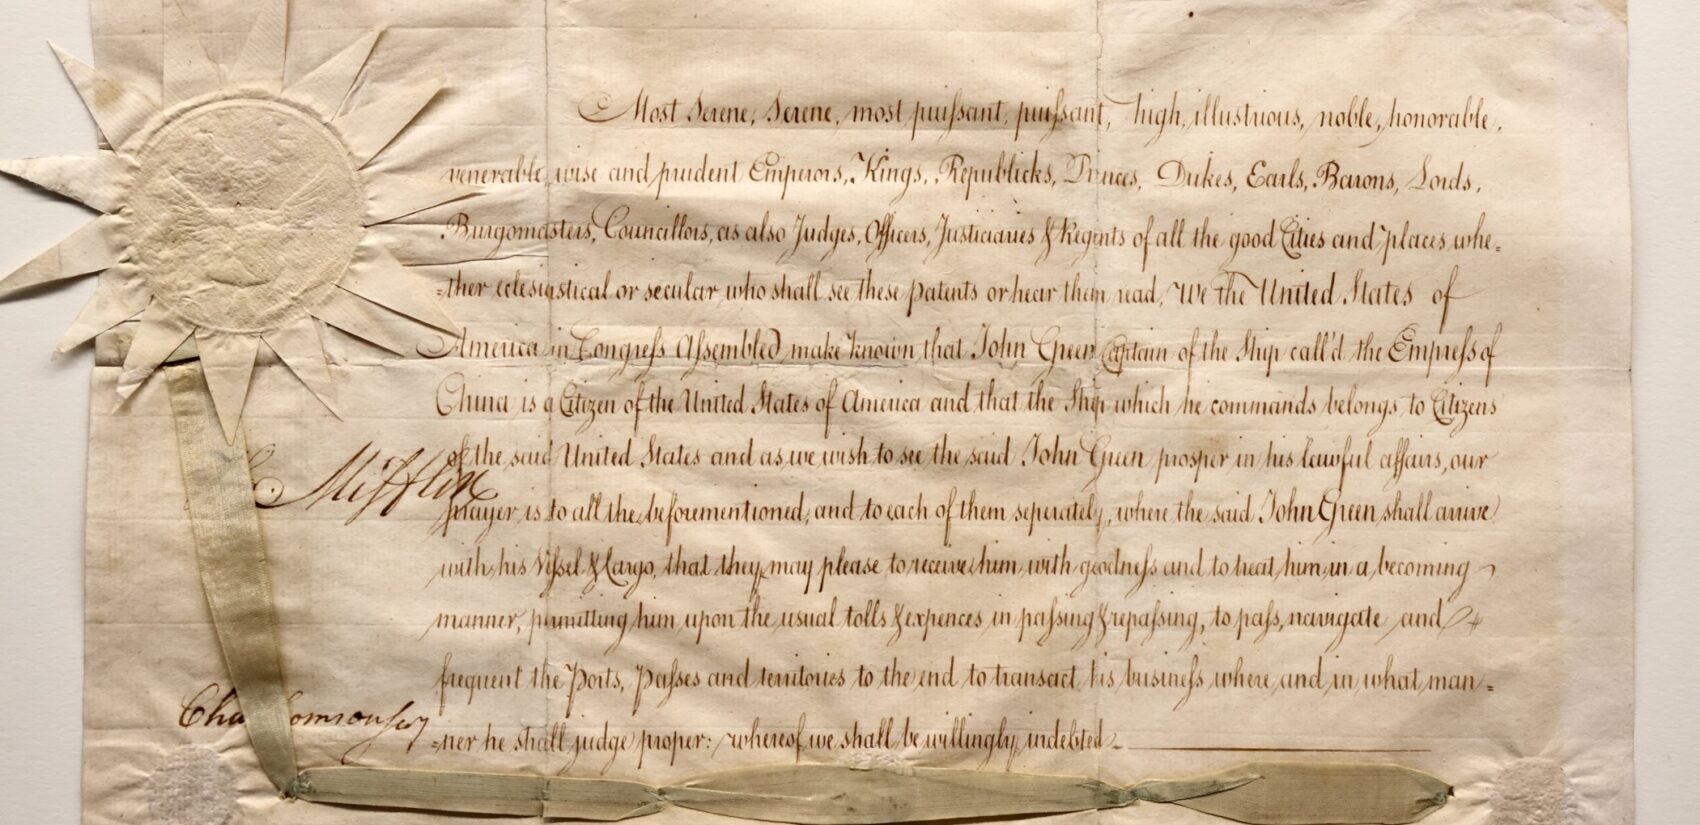 Most Serene, Serene, most puissant, puissant, high, illustrious, noble, honorable,
venerable, wise and prudent Emperors, Kings, Republicks, Princes, Dukes, Earls, Barons, Lords,
Burgomasters, Councillors, as also Judges, Officers, Justiciaries & Regents of all the good Cities and places, whe=
=ther eclesiastical or secular who shall see these patents or hear them read, We the United States of
America in Congress Assembled make known that John Green Captain of the Ship call'd the Empress of
China is a Citizen of the United States of America and that the Ship which he commands belongs to Citizens
of the said United States and as we wish to see the said John Green prosper in his lawful affairs, our
Mifflin
prayer is to all the beforementioned, and to each of them seperately, where the said John Green shall arive
with his Vessel & Cargo, that they may please to receive him with goodness and to treat him in a becoming
manner, permitting him upon the usual tolls & expences in passing & repassing, to pass, navigate and
frequent the Ports, Passes and territories to the end to transact his business where and in what man=
Cha omson secy
=ner he shall judge proper: whereof we shall be willingly indebted.